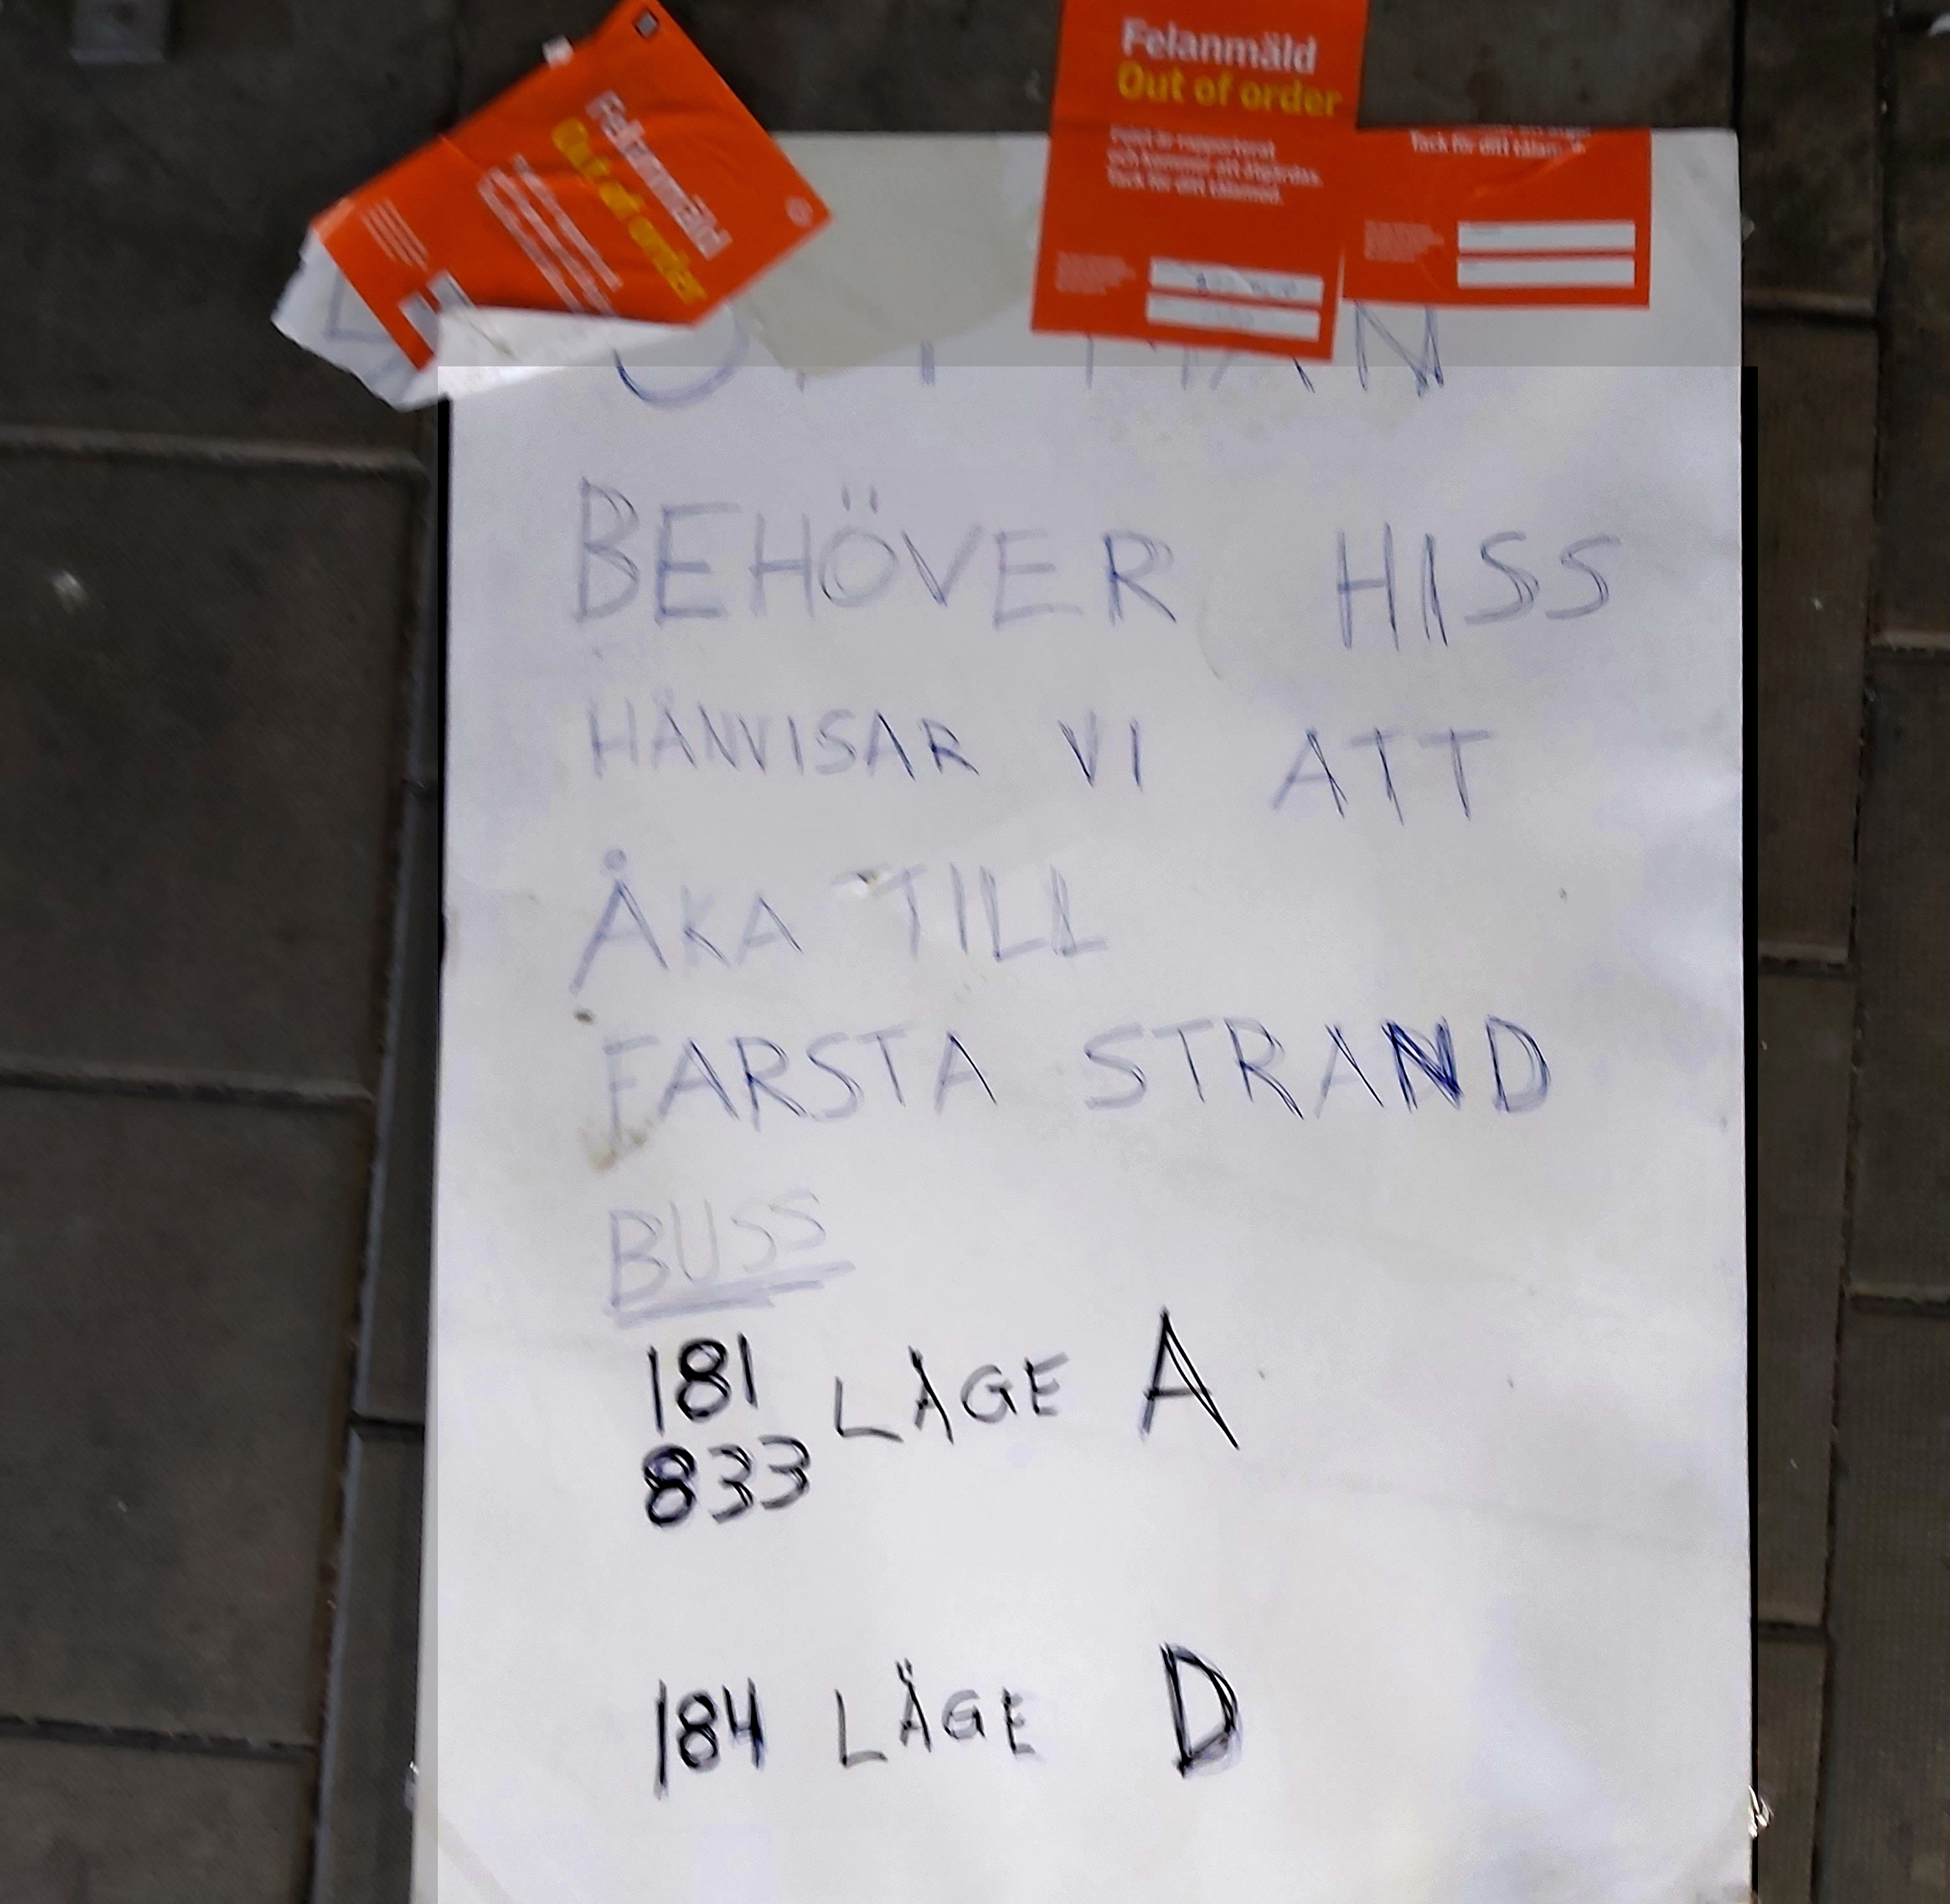 Felanmäld
Out of order
Felanmäld
Out of order
Felet är rapporterat
och kommer att åtgärdas.
Tack för ditt tålamod.
Tack för ditt tålamod.
MAN
BEHÖVER HISS
HÄNVISAR VI ATT
ÅKA TILL
FARSTA STRAND
BUSS
181 LÄGE A
833
184 LÄGE D